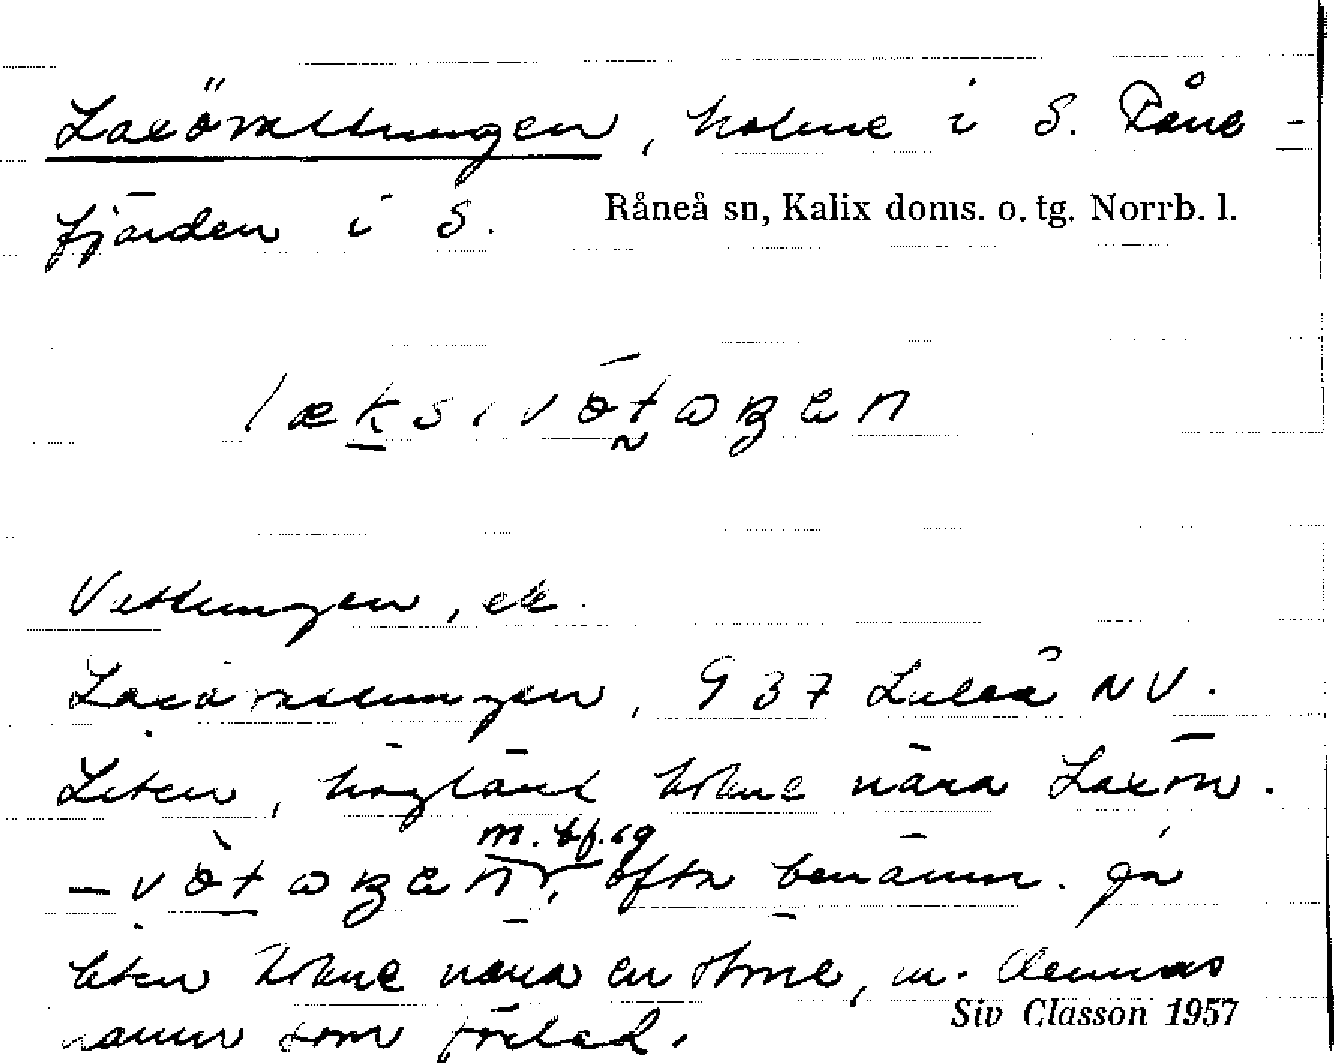 Laxövettungen, holme i S. Råne-
fjärden i S. Råneå sn, Kalix doms. o. tg. Norrb. l.
Vettungen, ek.
Laxövettungen, 937 Luleå NV.
Liten, högländ holme nära Laxön.
m. bf. sg
ofta benämn. på
liten holme nära en större, m. dennas
namn som förled.
Siv Classon 1957